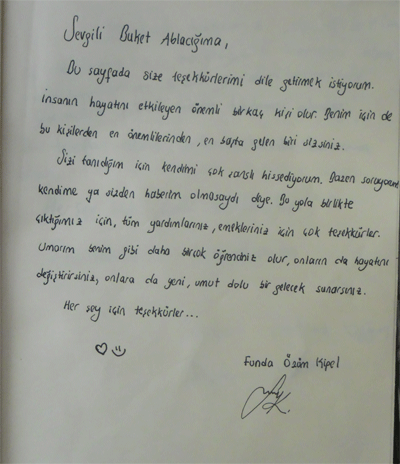 Sevgili Buket Ablacığıma,
Bu sayfada size teşekkürlerimi dile getirmek istiyorum.
İnsanın hayatını etkileyen önemli birkaç kişi olur. Benim için de
bu kişilerden en önemlilerinden, en başta gelen biri sizsiniz.
Sizi tanıdığım için kendimi çok şanslı hissediyorum. Bazen soruyorum
kendime ya sizden haberim olmasaydı diye. Bu yola birlikte
çıktığımız için, tüm yardımlarınız, emekleriniz için çok teşekkürler.
Umarım benim gibi daha birçok öğrenciniz olur, onların da hayatını
değiştirirsiniz, onlara da yeni, umut dolu bir gelecek sunarsınız.
Her şey için teşekkürler...
Funda Özüm Kipel